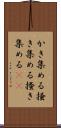 かき集める掻
き集める掻き
集める